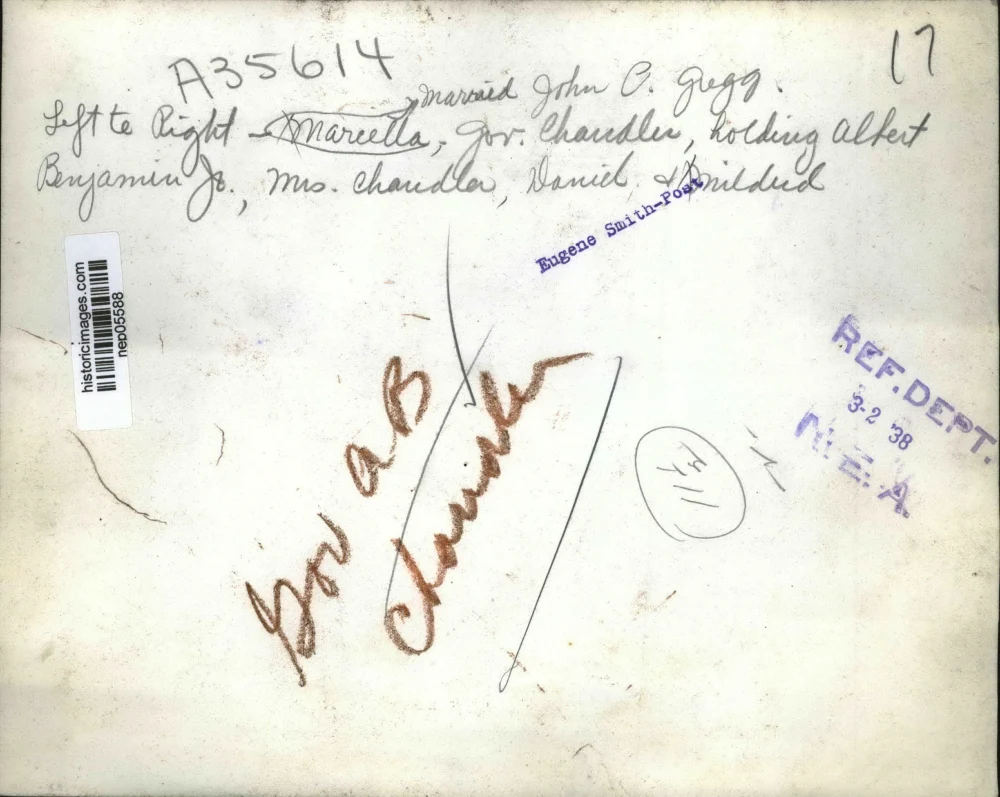 A35614
17
married John C. Gregg.
Left to Right - Marcella, Gov. Chandler, holding Albert
Benjamin Jr., Mrs. Chandler, Daniel, & Mildred
Eugene Smith-Post
historicimages.com
nep05588
REF. DEPT.
3-2 38
N.E.A.
Gov AB
Chandler